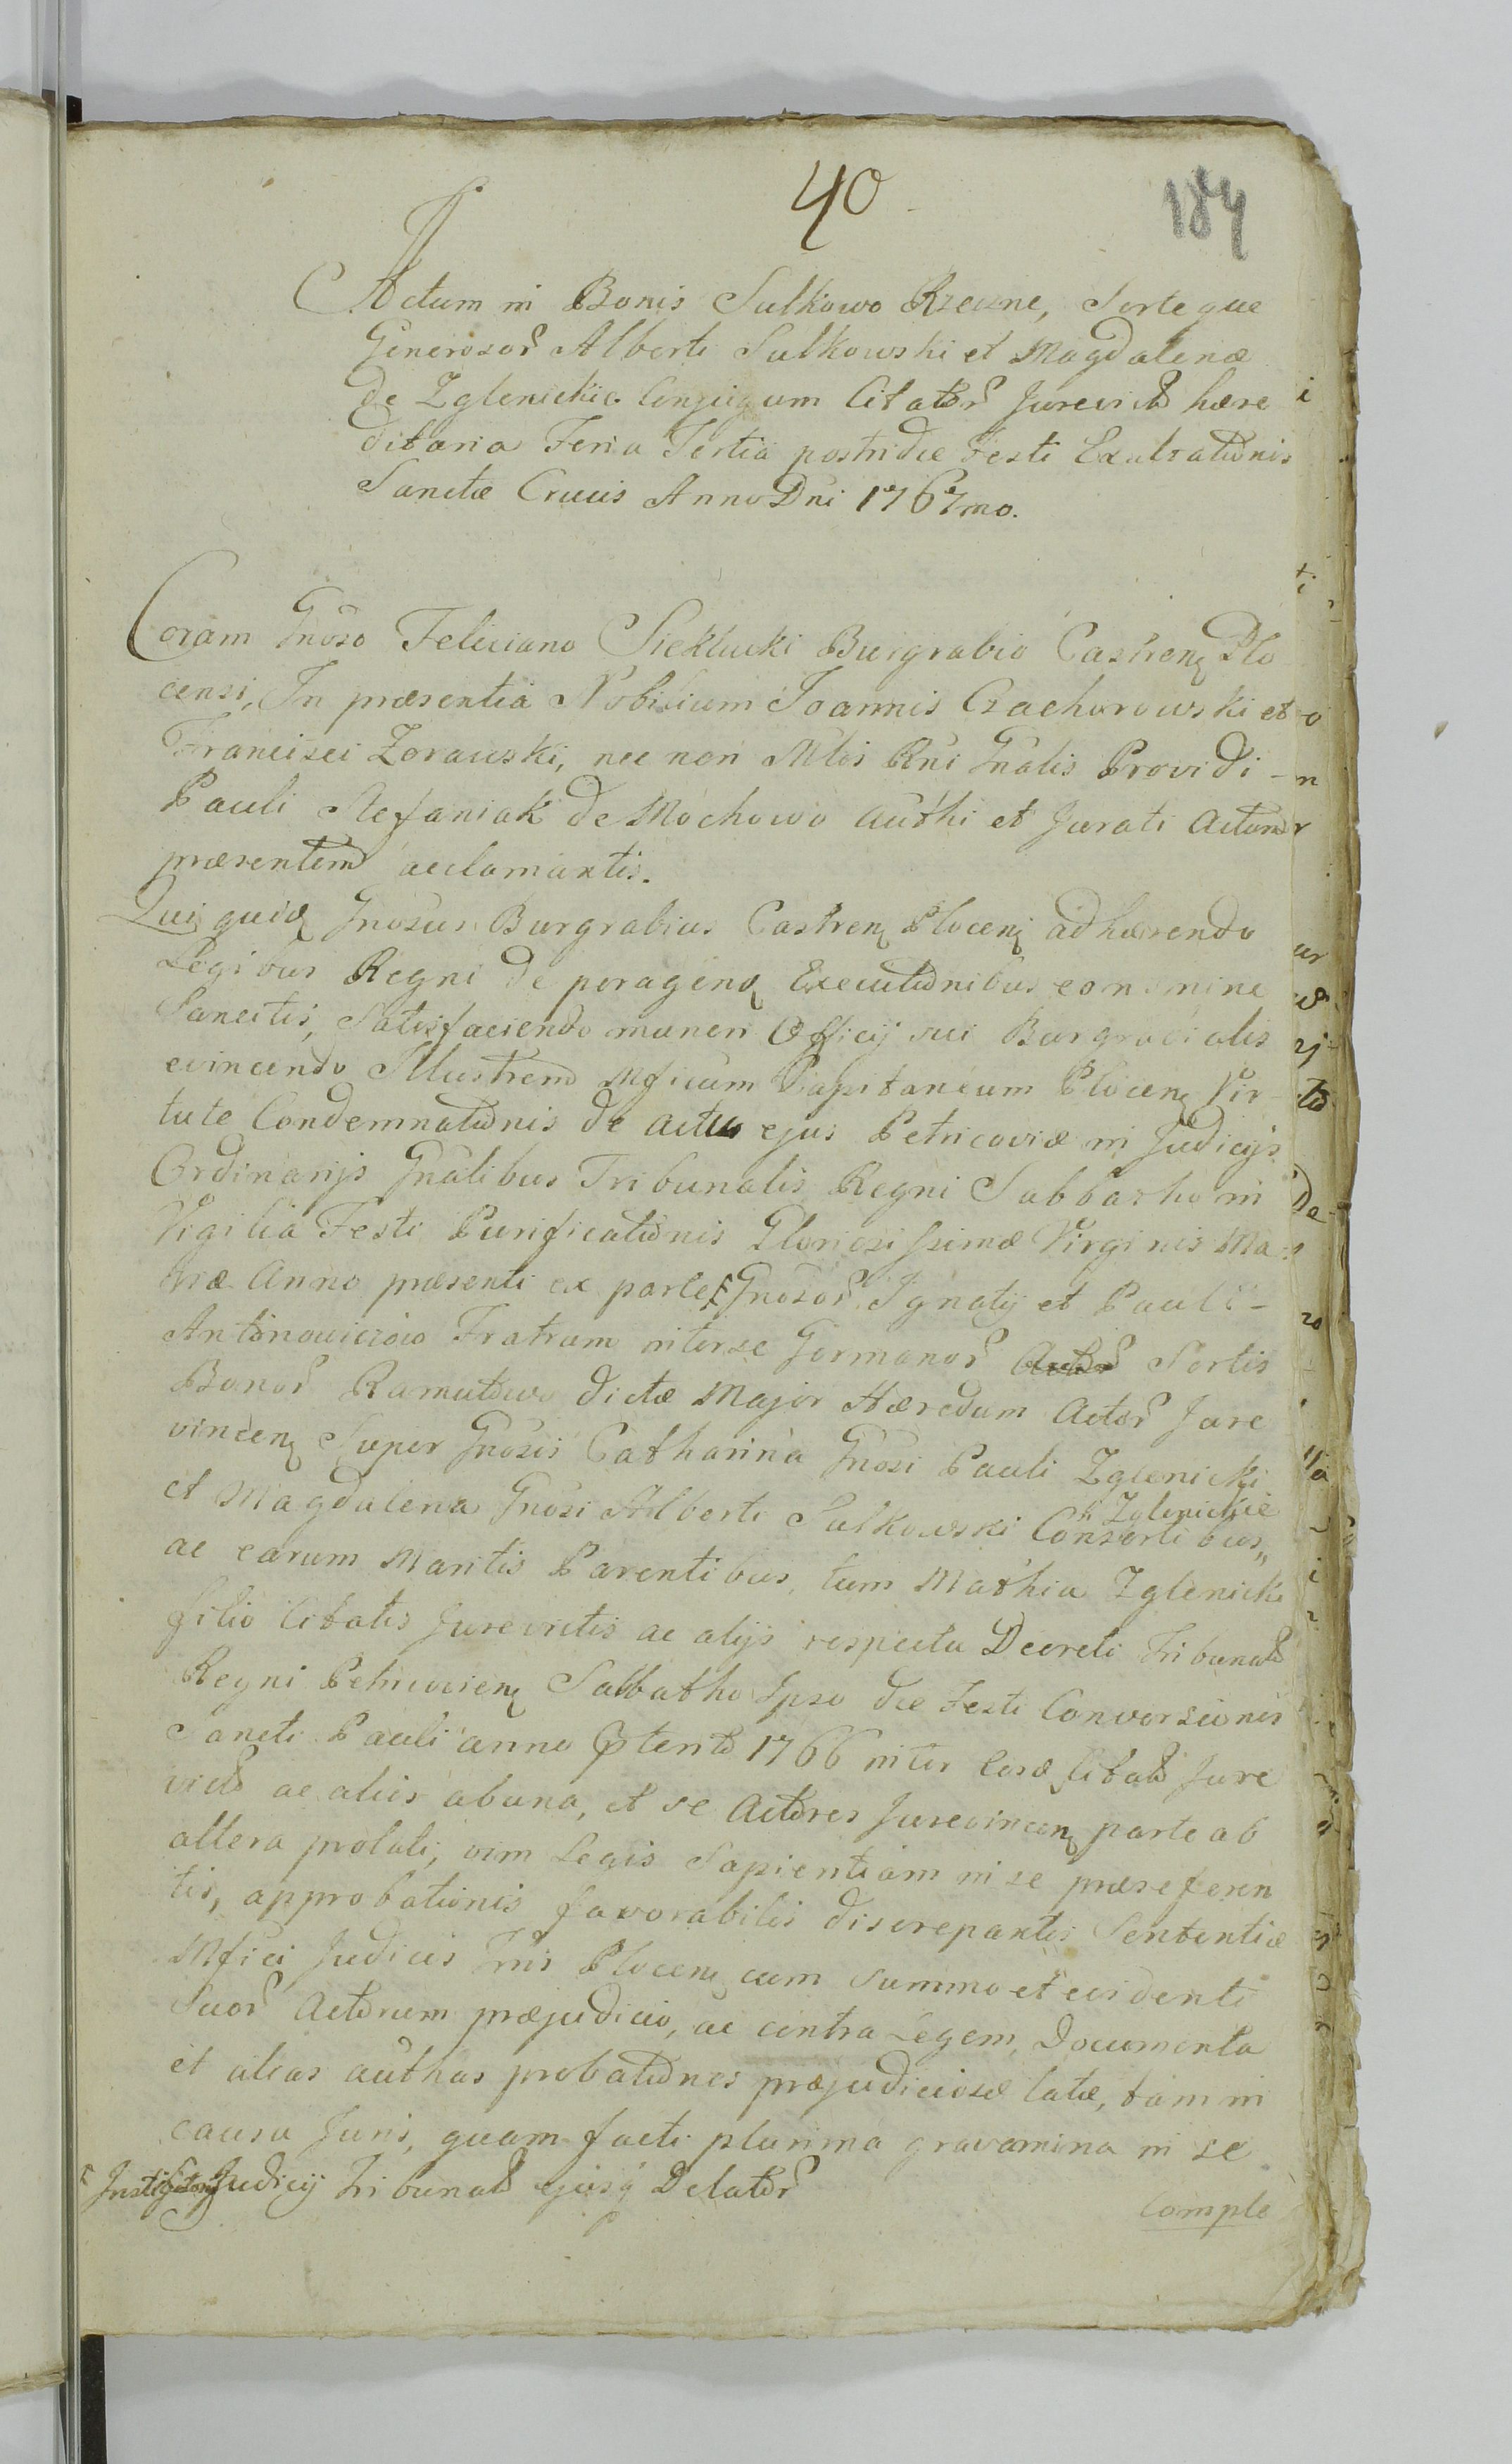 40
184
Actum in Bonis Sulkowo Rzeczne, Sorteque
Generosor̃ Alberti Sulkowski et Magdalenæ
de Zglenickie Conjugum Citator̃ Jurevict̃ hære
ditaria Feria Tertia postridie Festi Exaltationis
Sanctæ Crucis Anno Dni 1767mo.
Coram Gnoso Feliciano Siekłucki Burgrabio Castren Plo
censi, In præsentia Nobilium Joannis Czachorowski et
Francisci Zorawski, nec non Mlis Rni Gnalis Providi
Pauli Stefaniak de Mochowo authi et Jurati Actum
præsentem aclamantis.
Qui quid Gnosus Burgrabius Castren Plocen adhærendo
Legibus Regni de peragend Executionibus eo nomine
Sancitis, Satisfaciendo muneri Officij sui Burgrabialis
evincendo Illustrem Mficum Capitaneum Plocen Vir
tute Condemnationis de actu ejus Petricoviæ in Judicijs
Ordinarijs Gnalibus Tribunalis Regni Sabbatho in
Vigilia Festi Purificationis Gloriosissimæ Virginis Ma
riæ Anno præsenti ex parte Gnosor̃ Ignatij et Pauli
Antonowiczow Fratrum inter se Germanor̃ Sortis
Bonor̃ Ramutowo dictæ Major Hæredum Actor̃ Jure
vincen Super Gnosis Catharina Gnosi Pauli Zglenicki
et Magdalena Gnosi Alberti Sulkowski Consortibus
Zglenickie
ac earum Maritis Parentibus, tum Mathia Zglenicki
filio Citatis Jurevictis ac alijs respectu Decreti Tribunal
Regni Petricovien Sabbatho Ipso die Festi Conversionis
Sancti Pauli anno Pterito 1766 inter eosd Citat Jure
vict ac alios ab una, et se Actores Jurevincen parte ab
altera prolati, vim Legis Sapientiam in se præseferen
tis, approbationis favorabilis discrepantis Sententiæ
Mfici Judicis Tris Plocen cum summo et evidenti
Suor̃ Actorum præjudicio, ac contra Legem, Documenta
et alias authas probationes præjudiciosæ latæ, tam in
causa Juris, quam facti plurima gravamina in se
Instigatoris Judicij Tribunal ejusq Delator̃
Comple